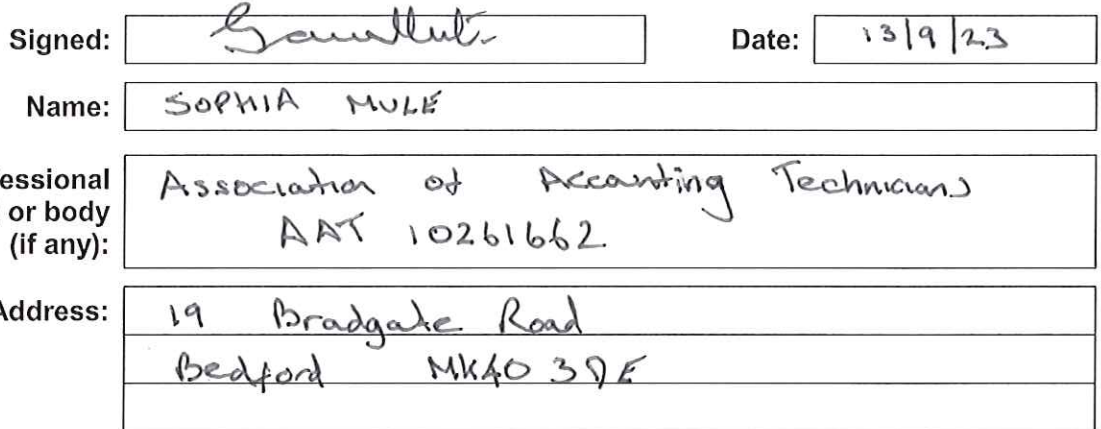 Signed: Date: 13/9/23
Name: SOPHIA MULE
essional Association of Accounting Technicians
or body AAT 10261662
(if any):
Address: 19 Bradgate Road
Bedford MK40 3DE